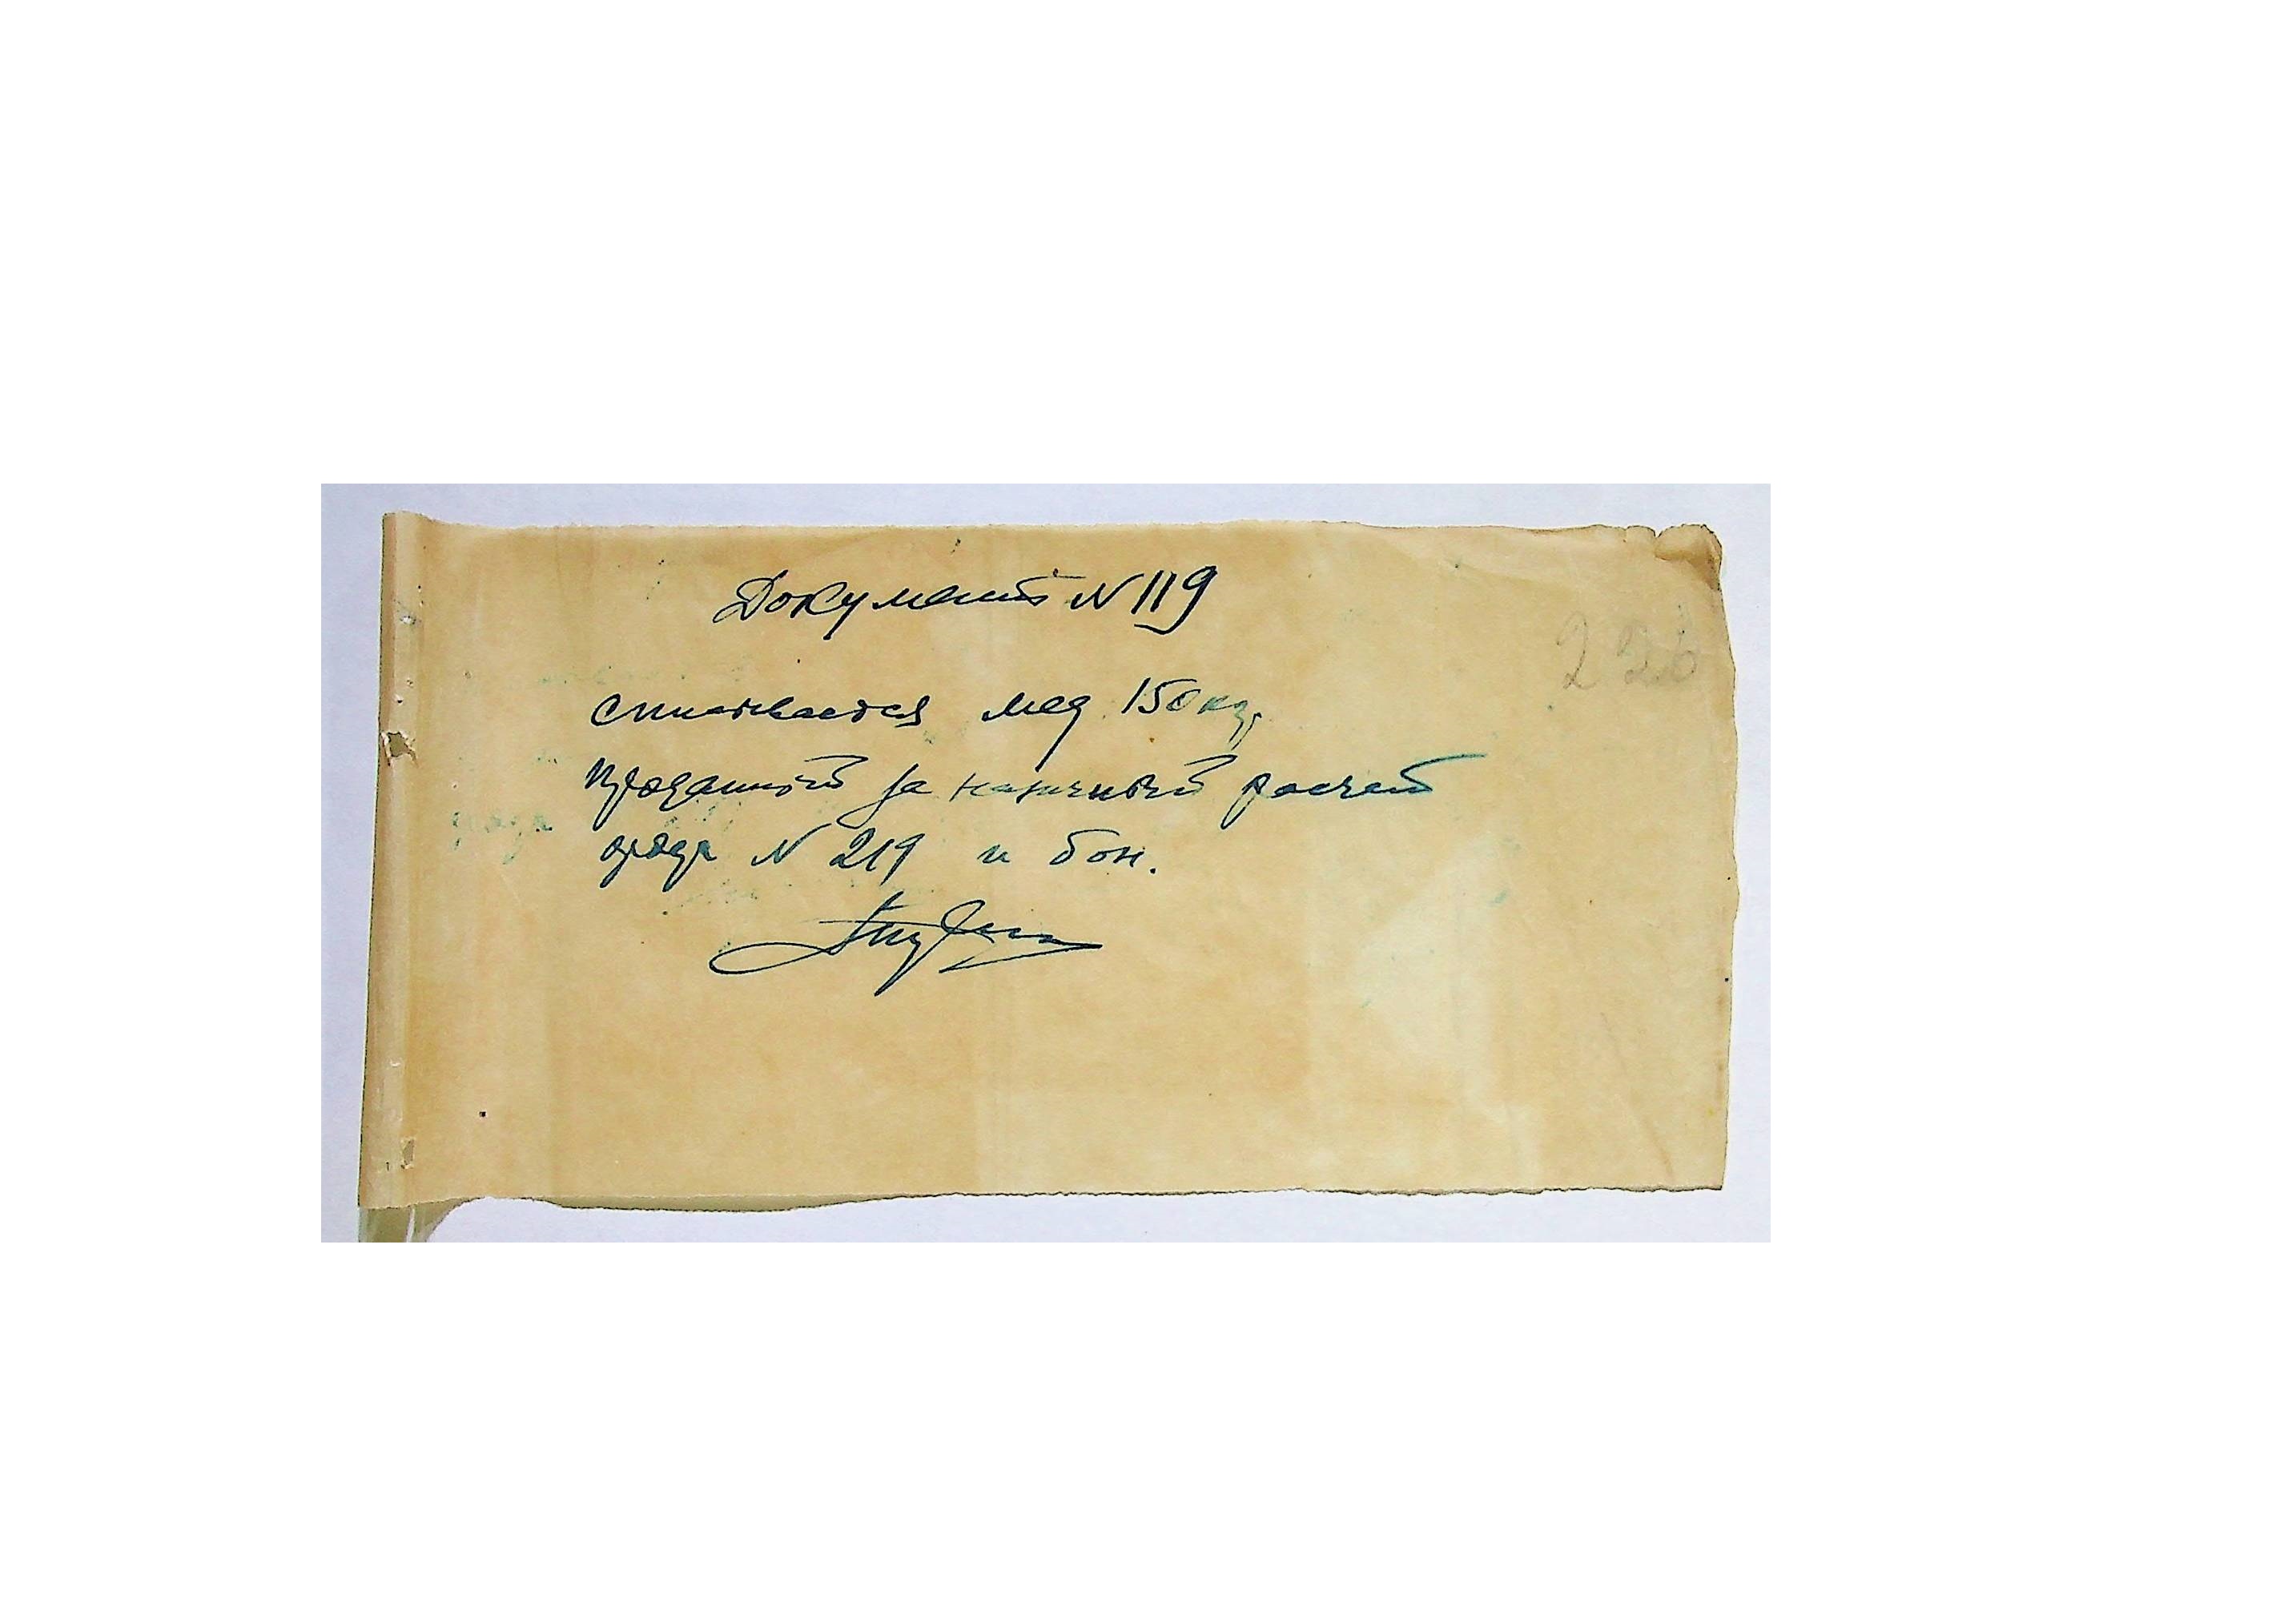 Документ N 119
22
списывается мед 150 кг.
проданный за наличный расчет
ордер N 219 и бон.